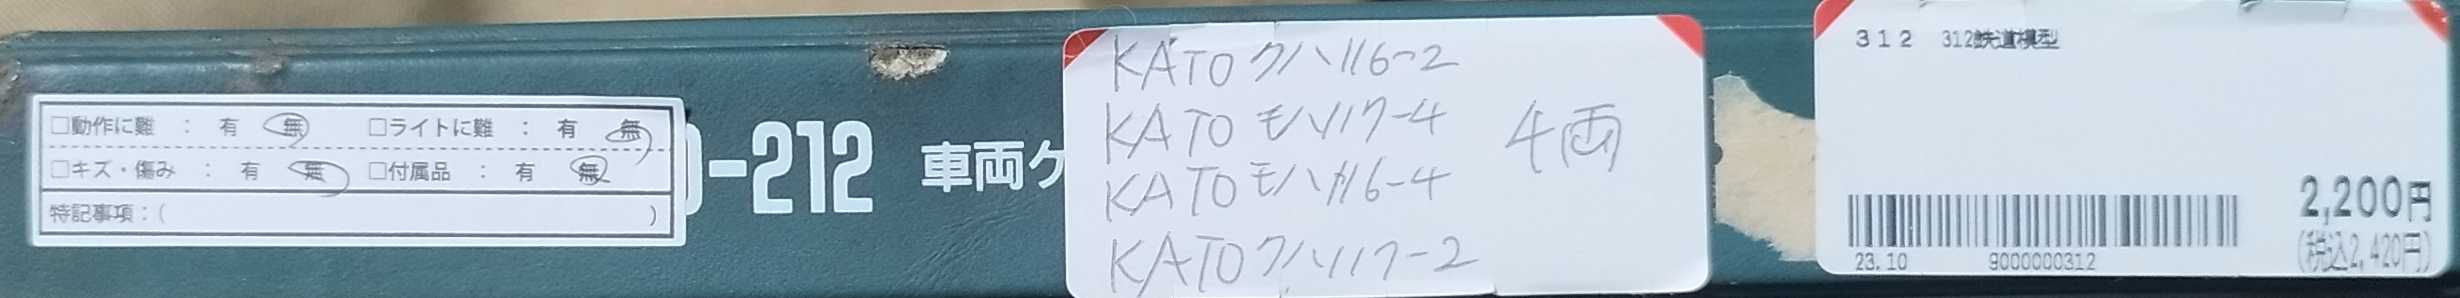 □動作に難 ： 有 無 □ライトに難 ： 有 無
□キズ・傷み ： 有 無 □付属品 ： 有 無
特記事項：( )
-212 車両ケ
KATO クハ116-2
KATO モハ117-4
KATO モハ116-4
KATO クハ117-2
4両
312 312鉄道模型
2,200円
(税込2,420円)
23.10 9000000312